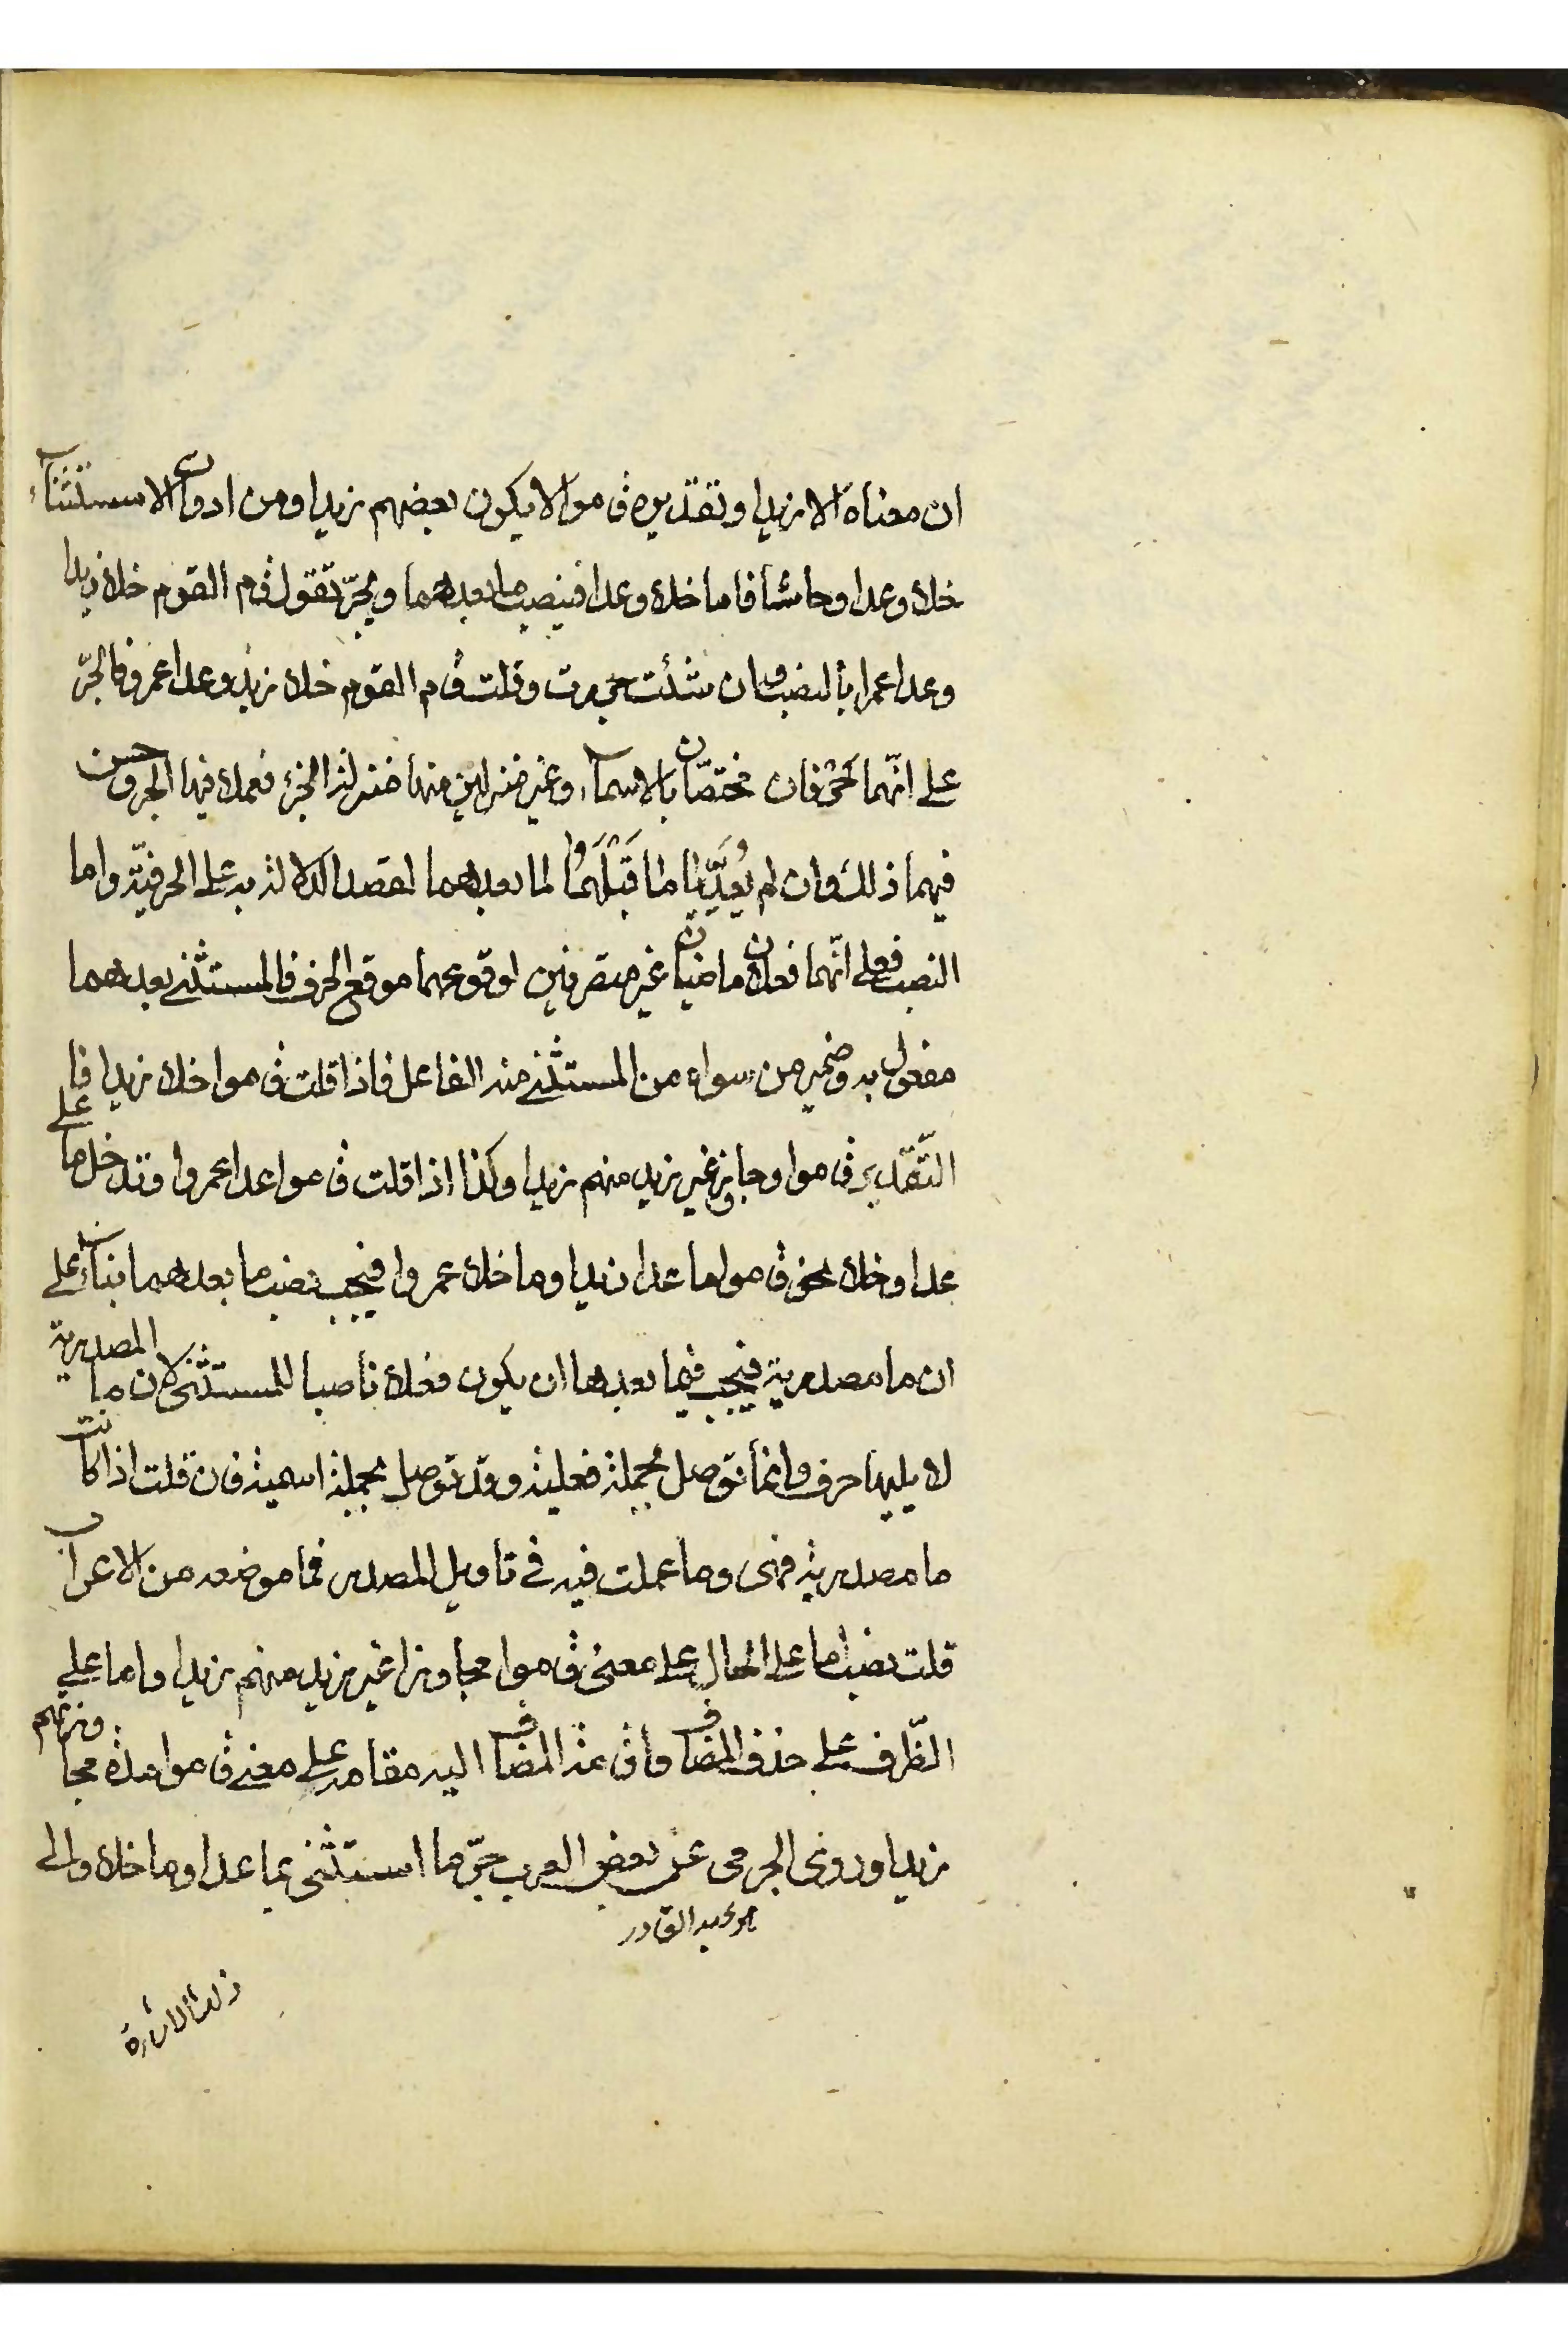 ان معناه الا زيدا وتقديره قاموا لا يكون بعضهم زيدا ومن ادوات الاستثناء
خلا وعدا وحاشا فاما خلا وعدا فينصب ما بعدهما ويجرّ تقول قام القوم خلا زيدا
وعدا عمرا بالنصب وان شئت جررت وقلت قام القوم خلا زيد وعدا عمرو فالجرّ
على انّهما حرفان مختصّان بالاسماء وغير منزلين منها منزلة الجزء فعملا فيها الجر وحسن
فيهما ذلك وان لم يُعدّيا ما قَبْلَهُما لما بعدهما لقصد الدلالة به على الحرفيّة واما
النصب فعلى انّهما فعلان ماضيان غير متصرفين لوقوعهما موقع الحرف فالمستثنى بعدهما
مفعول به وضمير من سواه من المستثنى منه الفاعل فاذا قلت قاموا خلا زيدا فا
التّقدير قاموا وجاوز غير زيد منهم زيدا وكذا اذا قلت قاموا عدا عمروا وتدخل ما على
عدا وخلا نحو قاموا ما عدا زيدا وما خلا عمروا فيجب نصب ما بعدهما بناء على
ان ما مصدرية فيجب فيما بعدها ان يكون فعلا ناصبا للمستثنى لان ما المصدرية
لا يليها حرف وانما توصل بجملة فعلية وقد توصل بجملة اسمية فان قلت اذا كانت
ما مصدرية فهى وما عملت فيه في تاويل المصدر فما موضعه من الاعراب
قلت نصب اما على الحال على معنى قاموا مجاوزا غير زيد منهم زيدا واما على
الظّرف على حذف المضاف واقامة المضاف اليه مقامه على معنى قاموا مدة مجاوزتهم
زيدا وروى الجرمى عن بعض العرب جرّ ما استثنى بما عدا وما خلا والى
عبد القادر